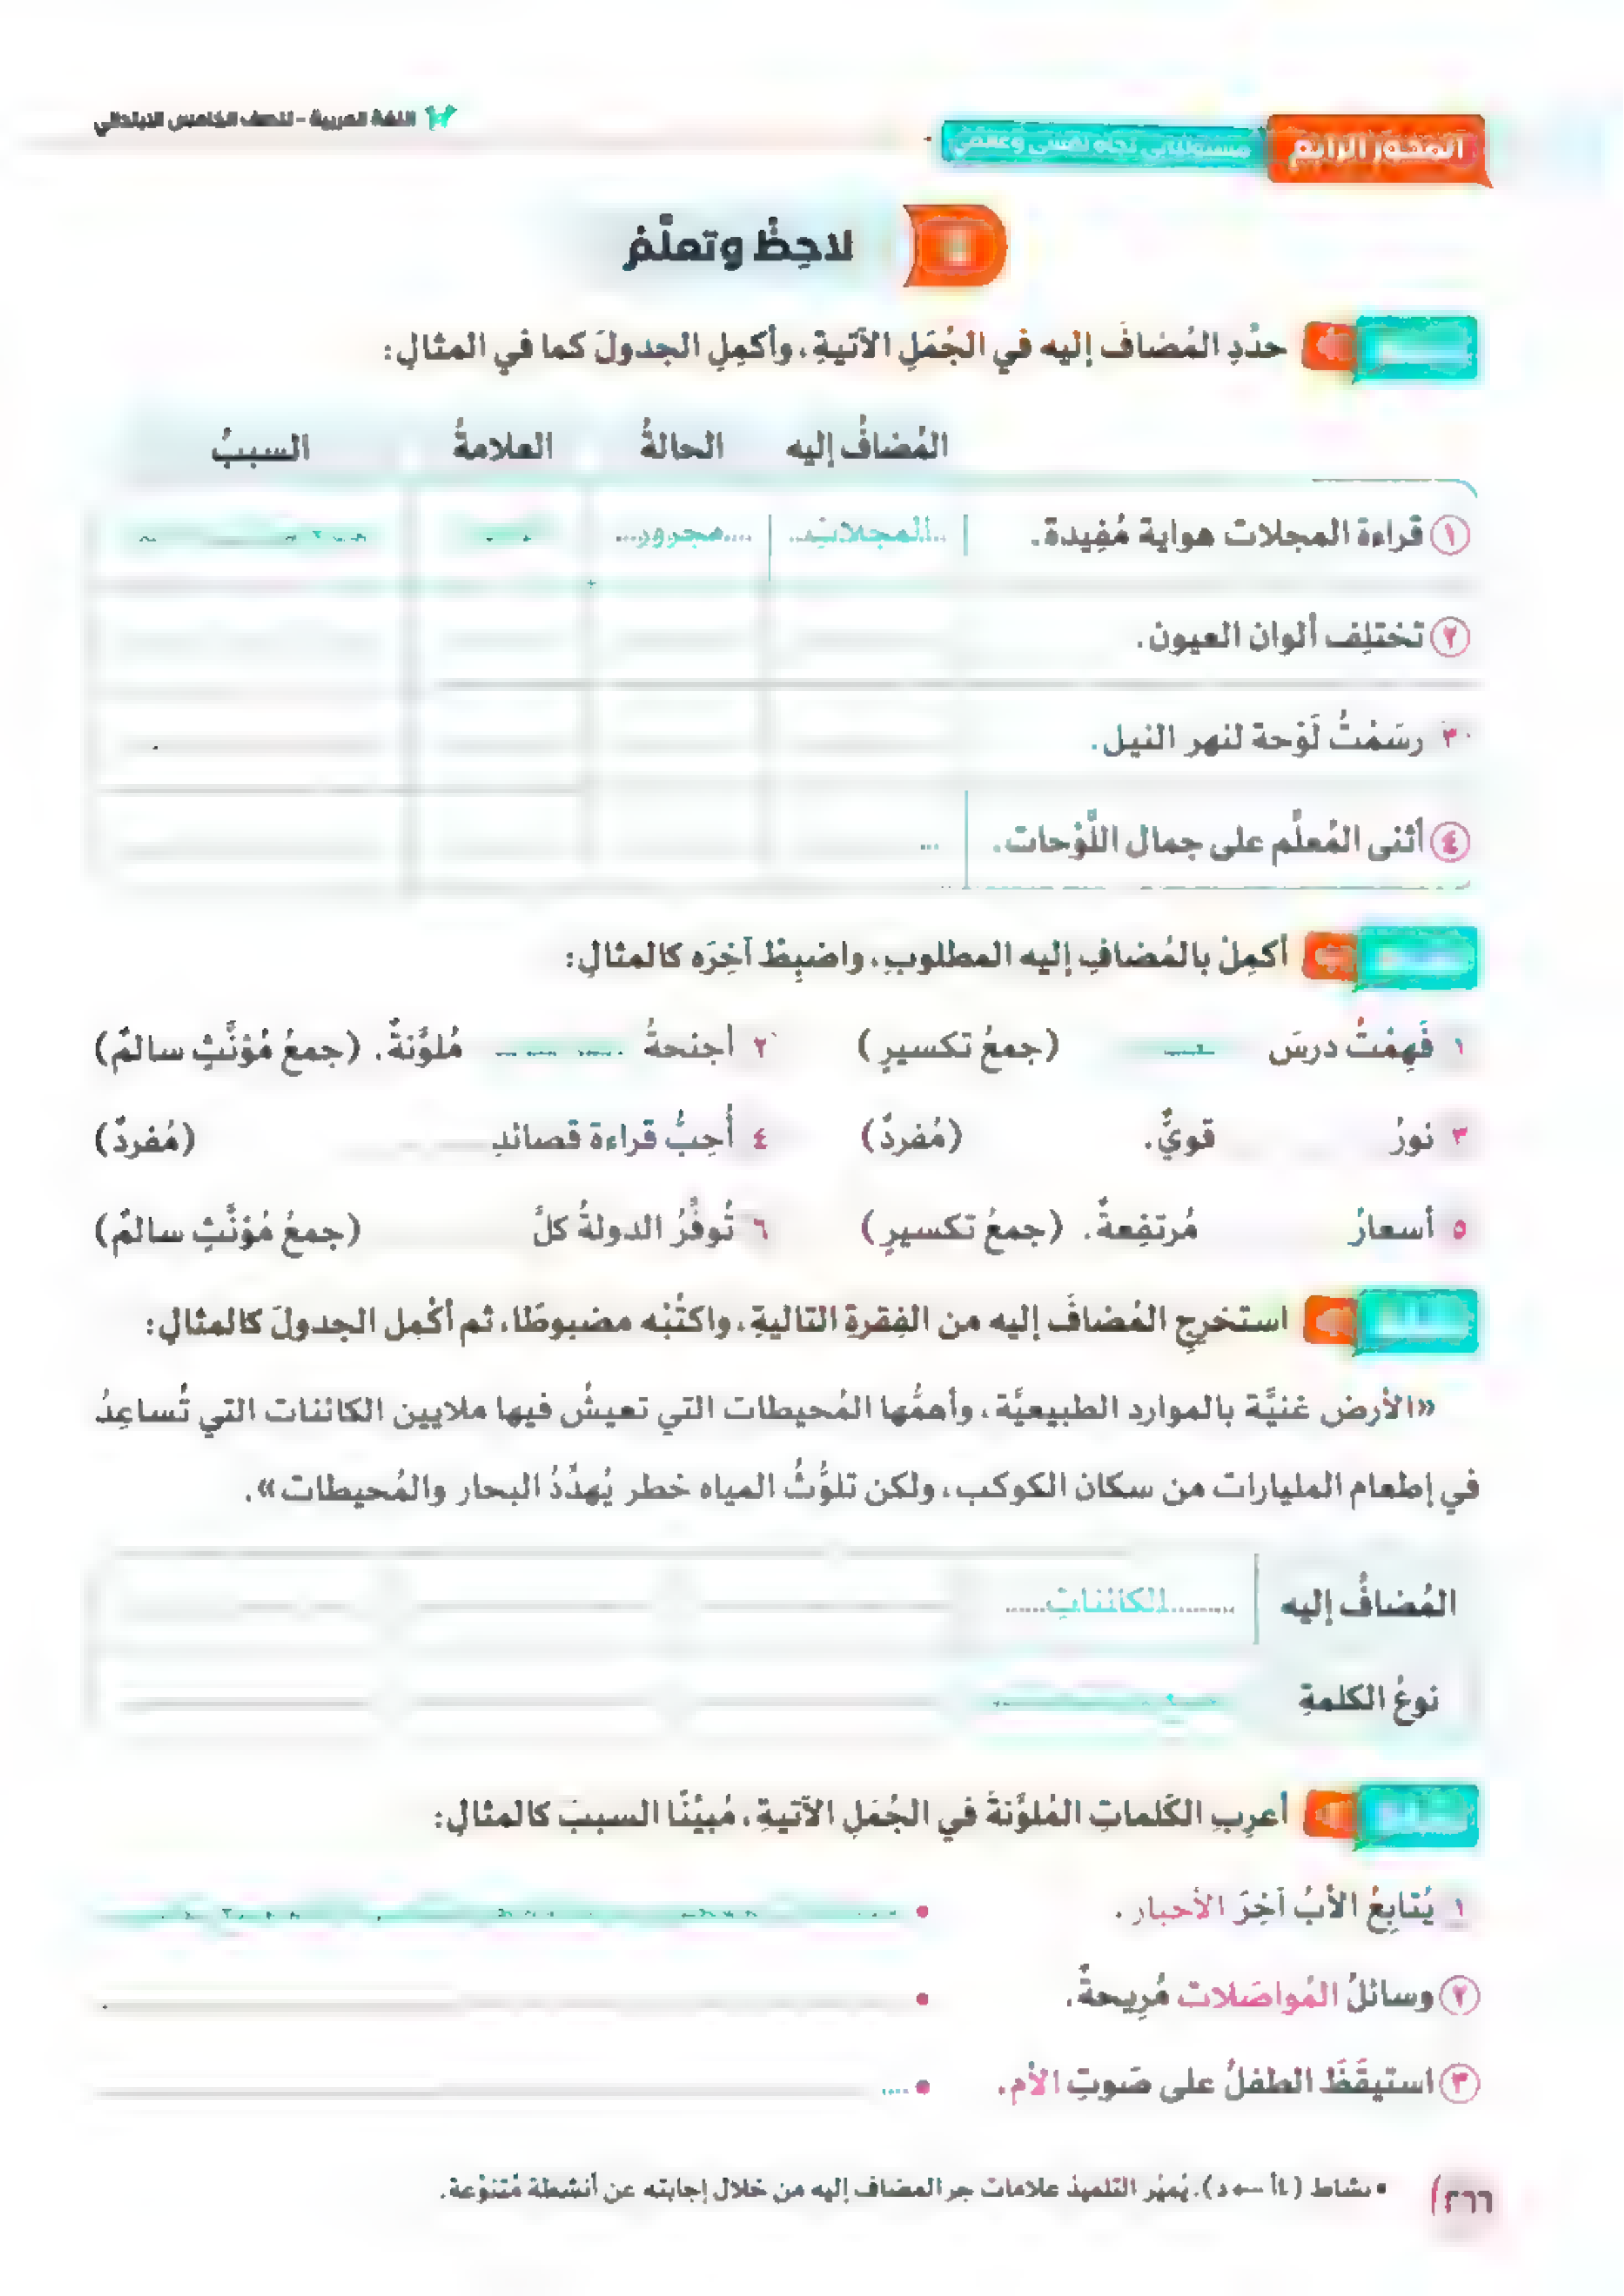 المحور الرابع
مسئولياتي تجاه نفسي وعالمي
اللغة العربية - للصف الخامس الابتدائي
لاحِظْ وتعلَّمْ
حدِّدِ المُضافَ إليه في الجُمَلِ الآتيةِ، وأكمِلِ الجدولَ كما في المثالِ:
المُضافُ إليه الحالةُ العلامةُ السببُ
١ قراءة المجلات هواية مُفِيدة. المجلاتِ مجرور
٢ تختلِف ألوان العيون.
٣ رسَمْتُ لَوْحة لنهر النيل.
٤ أثنى المُعلِّم على جمال اللَّوْحات.
أكمِلْ بالمُضافِ إليه المطلوبِ، واضبِطْ آخِرَه كالمثالِ:
١ فَهِمْتُ درسَ (جمعُ تكسيرٍ) ٢ أجنحةُ مُلوَّنةٌ. (جمعُ مُؤنَّثٍ سالمٌ)
٣ نورُ قويٌّ. (مُفردٌ) ٤ أُحِبُّ قراءة قصائدِ (مُفردٌ)
٥ أسعارُ مُرتفِعةٌ. (جمعُ تكسيرٍ) ٦ تُوفِّرُ الدولةُ كلَّ (جمعُ مُؤنَّثٍ سالمٌ)
استخرِجِ المُضافَ إليه من الفِقرةِ التاليةِ، واكتُبْه مضبوطًا، ثم أكْمِل الجدولَ كالمثالِ:
«الأرض غنيَّة بالموارد الطبيعيَّة، وأهمُّها المُحيطات التي تعيشُ فيها ملايين الكائنات التي تُساعِدُ
في إطعام المليارات من سكان الكوكب، ولكن تلوُّثُ المياه خطر يُهدِّدُ البحار والمُحيطات».
المُضافُ إليه الكائناتِ
نوعُ الكلمةِ
أعرِبِ الكَلماتِ المُلوَّنةَ في الجُمَلِ الآتيةِ، مُبيِّنًا السببَ كالمثالِ:
١ يُتابِعُ الأبُ آخِرَ الأخبار.
٢ وسائلُ المُواصَلات مُرِيحةٌ.
٣ استيقَظَ الطفلُ على صَوتِ الأم.
• نشاط (٤أ – د). يُميِّز التلميذ علامات جر المضاف إليه من خلال إجابته عن أنشطة مُتنوِّعة.
٢٦٦